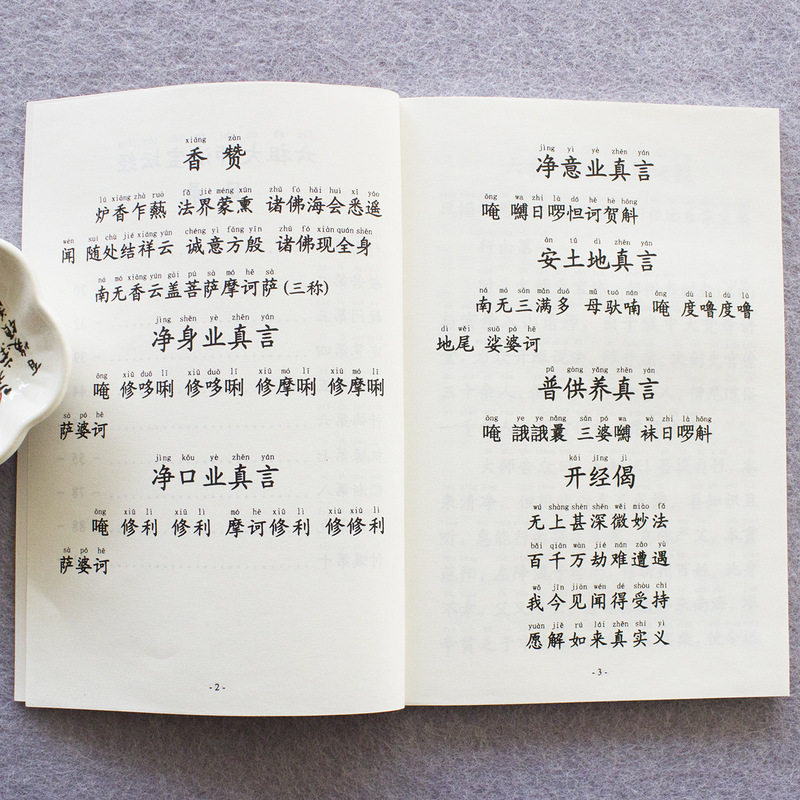 xiāng zàn
香赞
lú xiāng zhà ruò fǎ jiè méng xūn zhū fó hǎi huì xī yáo
炉香乍爇 法界蒙熏 诸佛海会悉遥
wén suí chù jié xiáng yún chéng yì fāng yīn zhū fó xiàn quán shēn
闻 随处结祥云 诚意方殷 诸佛现全身
ná mó xiāng yún gài pú sà mó hē sà
南无香云盖菩萨摩诃萨 (三称)
jìng shēn yè zhēn yán
净身业真言
ōng xiū duō lì xiū duō lì xiū mó lì xiū mó lì
唵 修哆唎 修哆唎 修摩唎 修摩唎
sà pó hē
萨婆诃
jìng kǒu yè zhēn yán
净口业真言
ōng xiū lì xiū lì mó hē xiū lì xiū xiū lì
唵 修利 修利 摩诃修利 修修利
sà pó hē
萨婆诃
- 2 -
jìng yì yè zhēn yán
净意业真言
ōng wa zhì là dá hē hè hōng
唵 嚩日啰怛诃贺斛
ān tǔ dì zhēn yán
安土地真言
ná mó sān mǎn duō mǔ tuó nán ōng dù lū dù lū
南无三满多 母驮喃 唵 度噜度噜
dì wěi suō pó hē
地尾 娑婆诃
pǔ gòng yǎng zhēn yán
普供养真言
ōng yé yé nǎng sān pó wa wà zhì là hōng
唵 誐誐曩 三婆嚩 袜日啰斛
kāi jīng jì
开经偈
wú shàng shèn shēn wēi miào fǎ
无上甚深微妙法
bǎi qiān wàn jié nán zāo yù
百千万劫难遭遇
wǒ jīn jiàn wén dé shòu chí
我今见闻得受持
yuàn jiě rú lái zhēn shí yì
愿解如来真实义
- 3 -